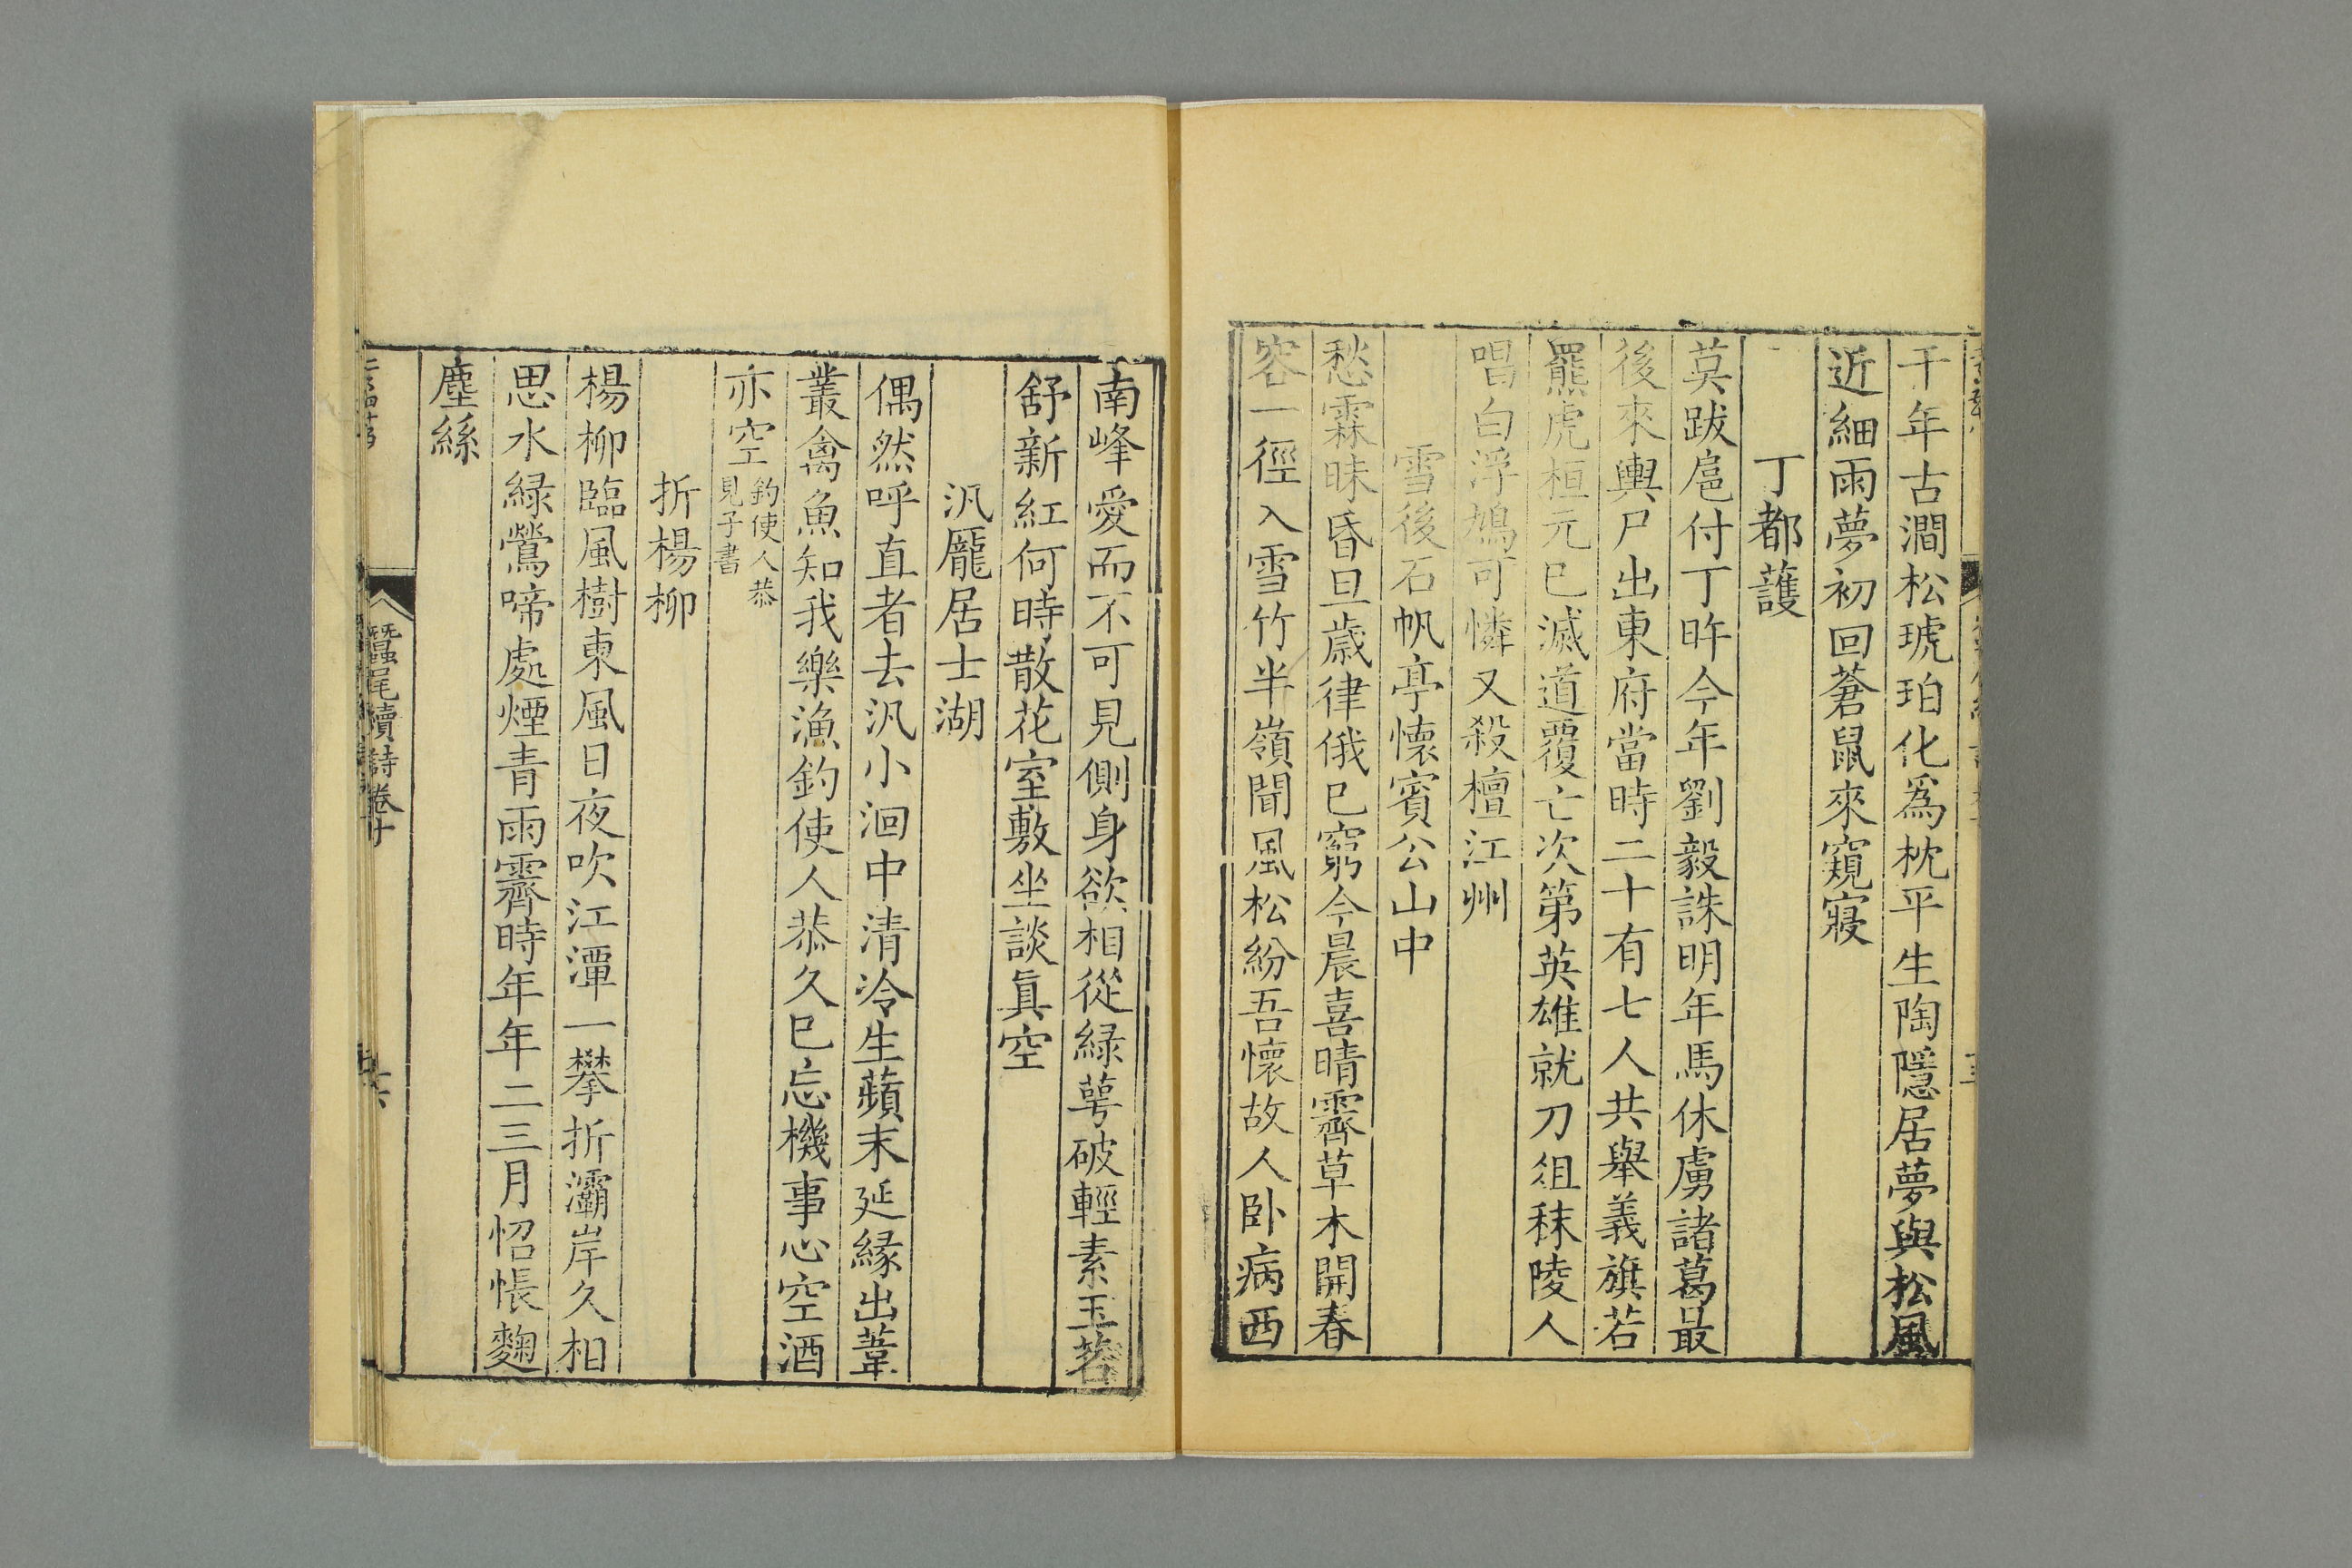 千年古澗松琥珀化為枕平生陶隱居夢與松風
近細雨夢初回蒼鼠來窺寢
丁都護
莫跋扈付丁旿今年劉毅誅明年馬休虜諸葛最
後來輿尸出東府當時二十有七人共舉義旗若
羆虎桓元已滅道覆亡次第英雄就刀俎秣陵人
唱白浮鳩可憐又殺檀江州
雪後石帆亭懷賓公山中
愁霖昧昏旦歲律俄已窮今晨喜晴霽草木開春
容一徑入雪竹半嶺聞風松紛吾懷故人卧病西
南峰愛而不可見側身欲相從綠萼破輕素玉蕊
舒新紅何時散花室敷坐談眞空
汎龎居士湖
偶然呼直者去汎小洄中清泠生蘋末延緣出葦
叢禽魚知我樂漁釣使人恭久已忘機事心空酒
亦空釣使人恭
見子書
折楊柳
楊柳臨風樹東風日夜吹江潭一攀折灞岸久相
思水綠鶯啼處煙青雨霽時年年二三月怊悵麴
塵絲
蠶尾續詩卷十
六